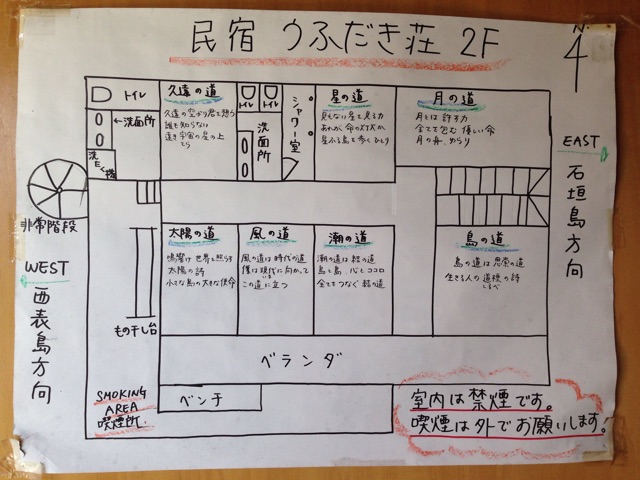 民宿 うふだき荘 2F
N
EAST
石垣島方向
WEST
西表島方向
トイレ
←洗面所
洗たく機
非常階段
久遠の道
久遠の空より君を想う
誰も知らない
遠き宇宙の星の上
トイレ
トイレ
洗面所
シャワー室
星の道
見えない星を見る力
星ふる島を歩くひとり
月の道
月とは許す力
全てを包む優しい命
月の舟、ゆらり
太陽の道
鳴響け世界を照らす
太陽の詩
小さな島の大きな使命
風の道
風の道は時代の道
僕は現代に向かって
この道に立つ
潮の道
潮の道は結の道
島と島、心とココロ
全てをつなぐ結の道
鳥の道
鳥の道は思索の道
生きる人の道標の詩
しるべ
もの干し台
ベランダ
ベンチ
SMOKING
AREA
喫煙所
室内は禁煙です。
喫煙は外でお願いします!